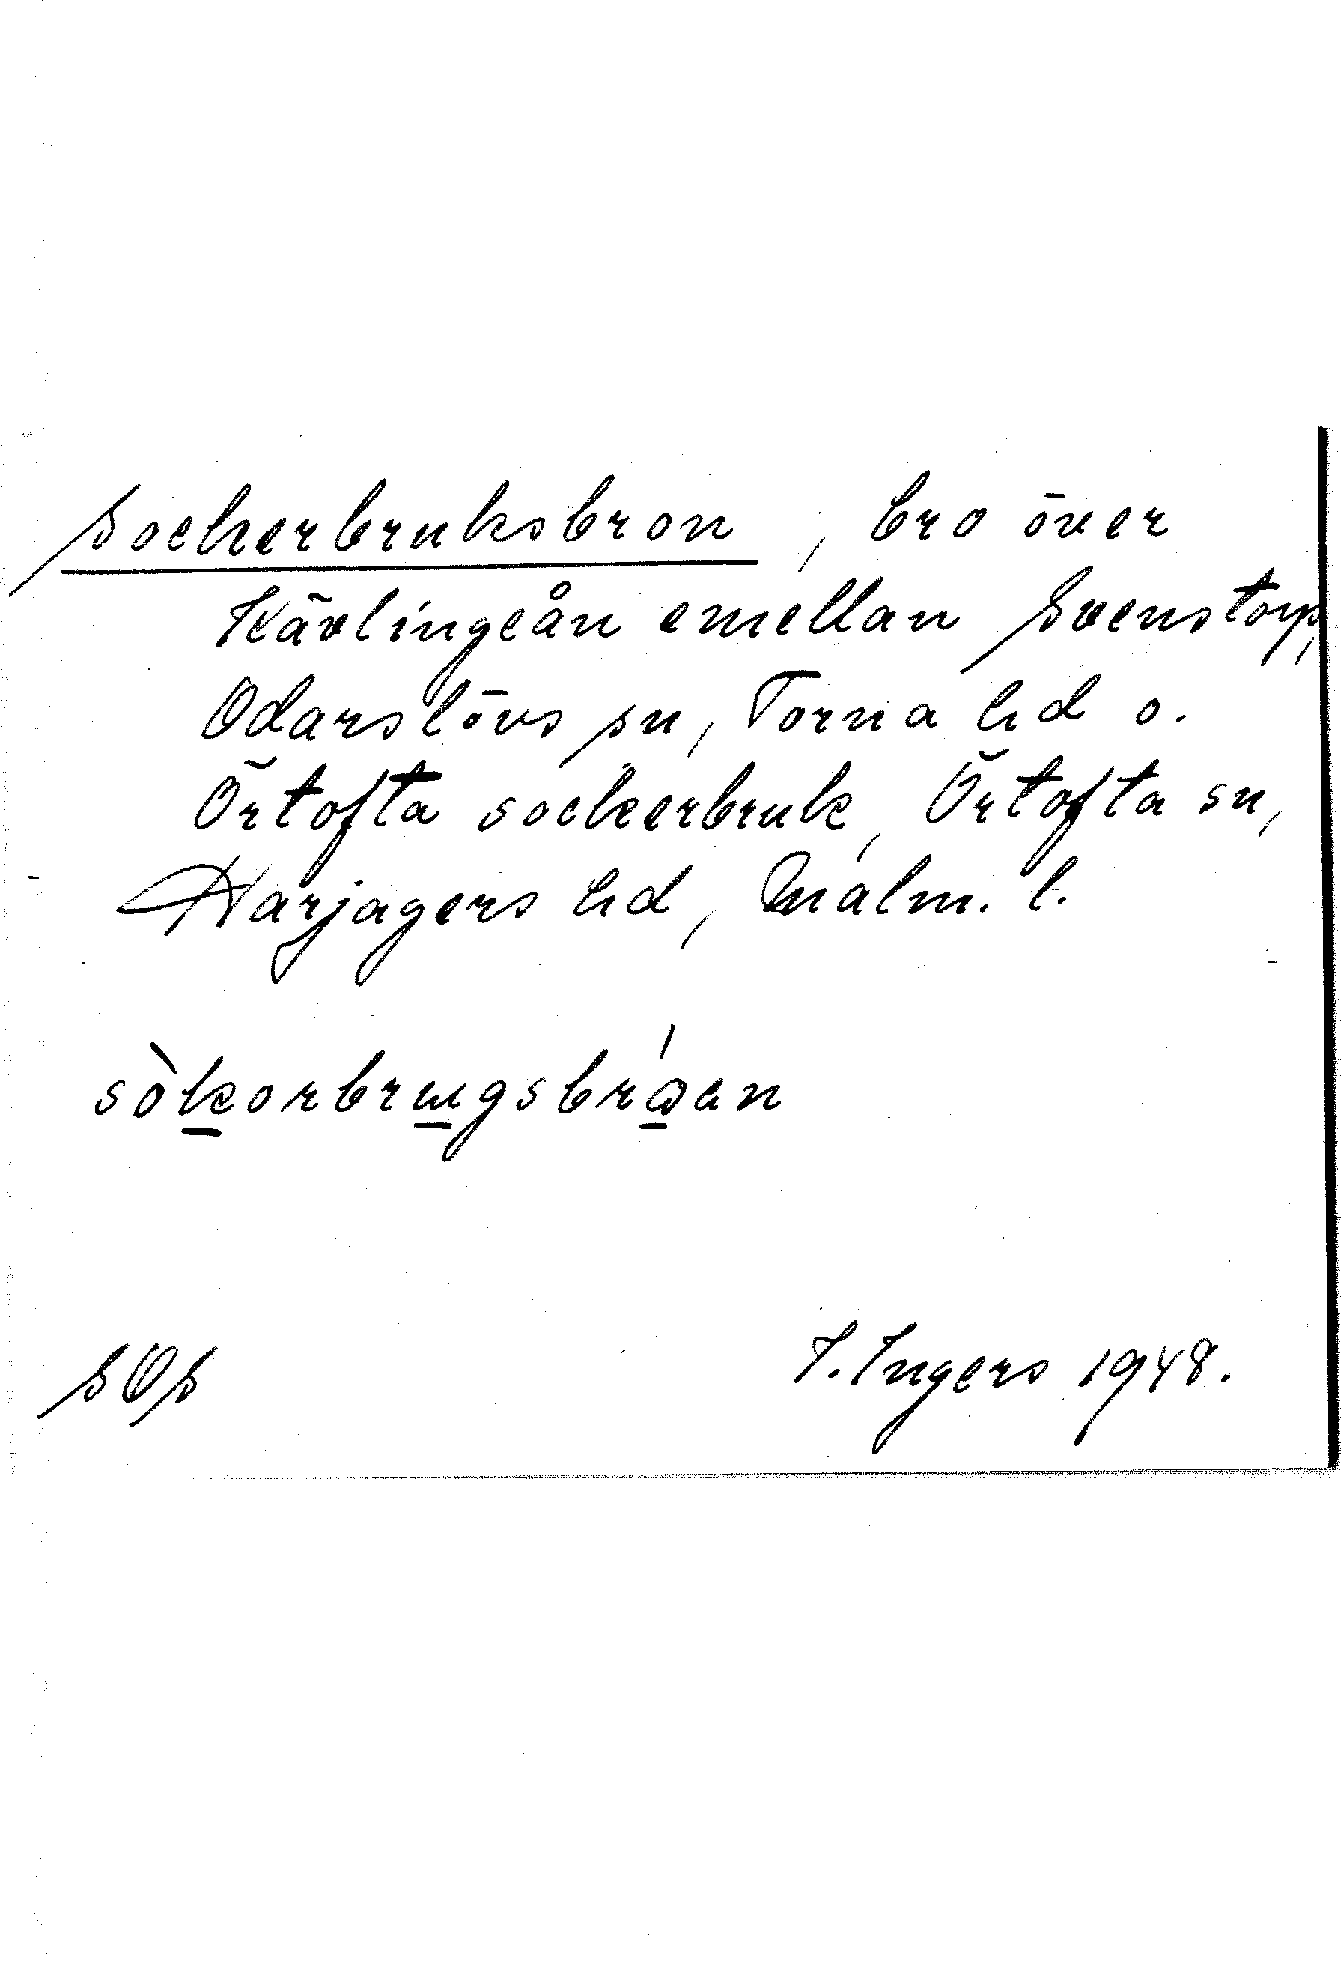 Sockerbruksbron, bro över
Kävlingeån emellan Svenstorp,
Odarslövs sn, Torna hd o.
Örtofta sockerbruk, Örtofta sn,
Harjagers hd, Malm. l.
SOS
I. Ingers 1948.